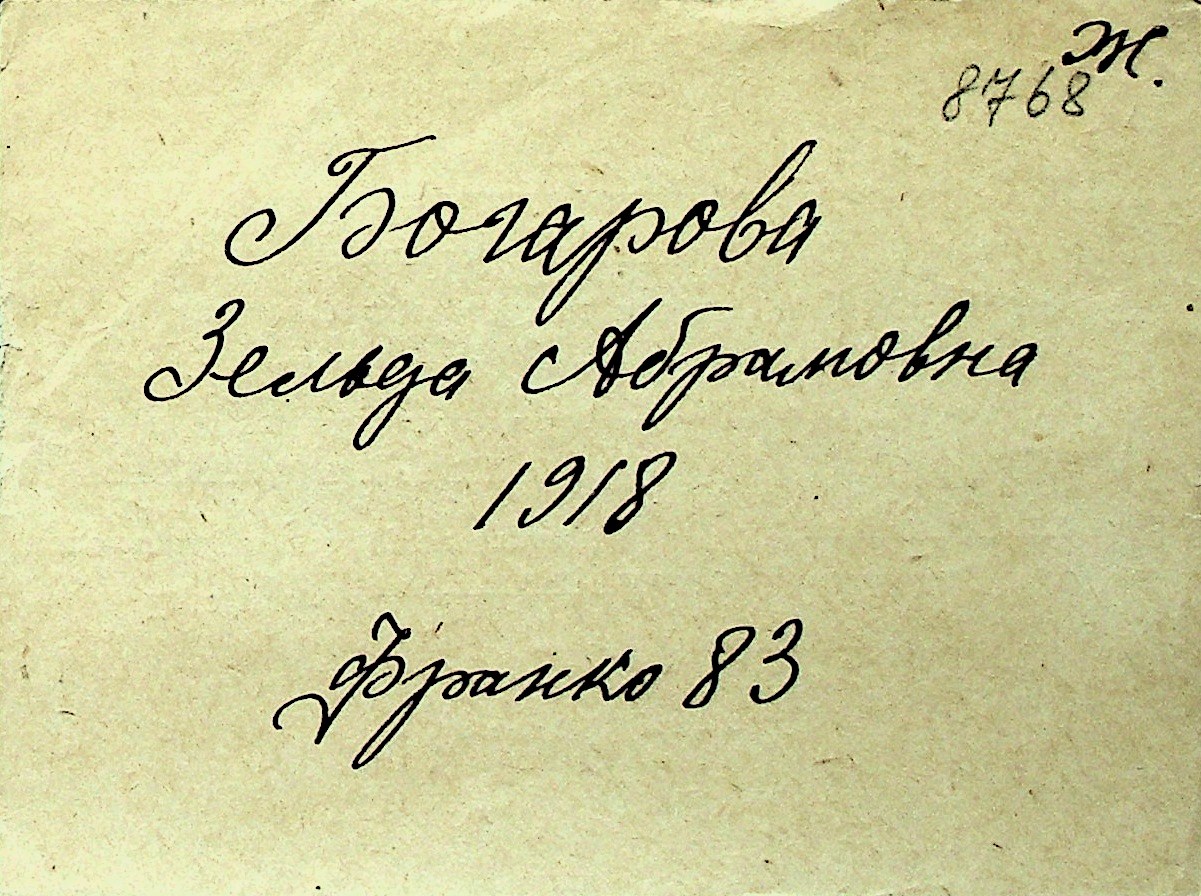 ж.
8768
Богарова
Зельда Абрамовна
1918
Франко 83